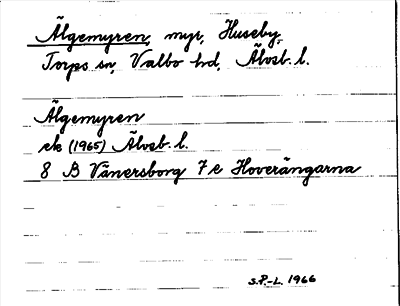 Älgemyren, myr, Huseby,
Torps sn, Valbo hd, Älvsb. l.
Älgemyren
ek (1965) Älvsb. l.
8 B Vänersborg 7 e Hoverängarna
S.P.-L. 1966